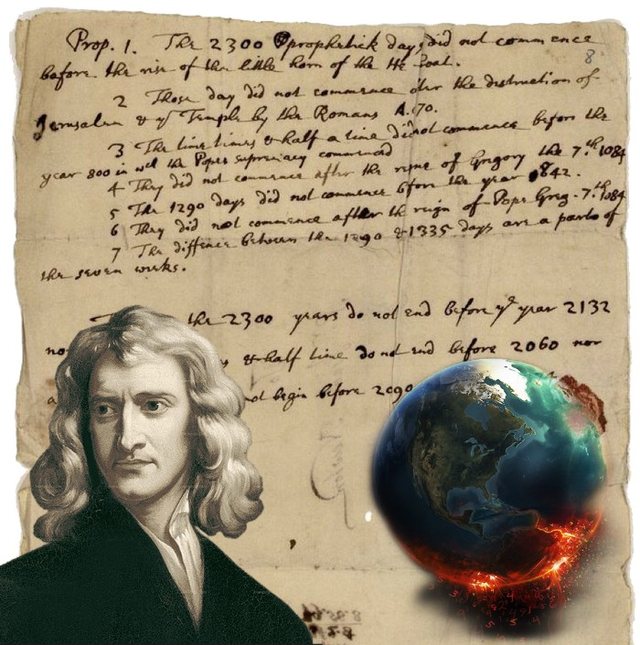 Prop. 1. The 2300 prophetick days did not commence
8
before the rise of the little horn of the He Goat.
2 Those day did not commence after the destruction of
Jerusalem & yᵉ Temple by the Romans A. 70.
3 The time times & half a time did not commence before the
year 800 in wᶜʰ the Popes supremacy commenced
4 They did not commence after the reigne of Gregory the 7.th 1084
5 The 1290 days did not commence before the year 842.
6 They did not commence after the reign of Pope Greg. 7.th 1084
7 The diffence between the 1290 & 1335 days are a parts of
the seven weeks.
the 2300 years do not end before yᵉ year 2132
& half time do not end before 2060 nor
begin before 2090